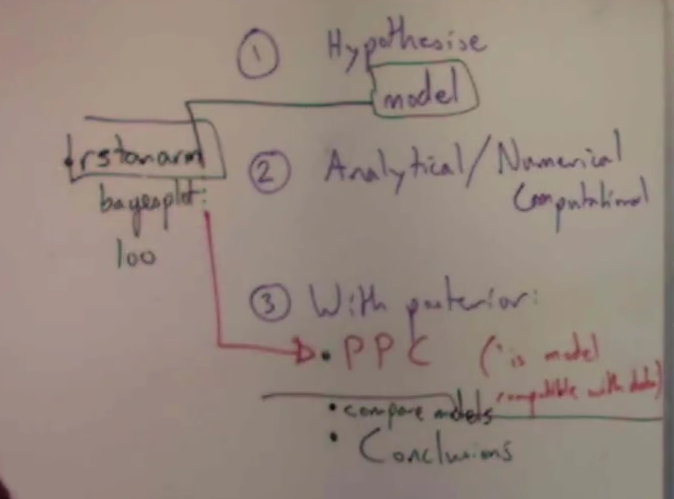 ① Hypothesise
model
rstanarm
② Analytical/Numerical
Computational
bayesplot:
loo
③ With posterior:
• PPC ("is model
compatible with data)
• compare models
• Conclusions